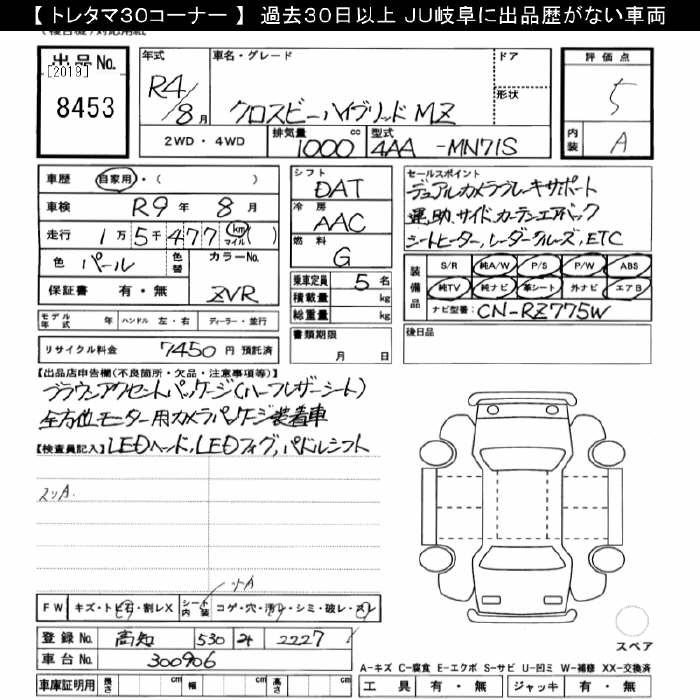 【 トレタマ30コーナー 】 過去30日以上 JU岐阜に出品歴がない車両
出品No.
[2019]
8453
年式
R4/8月
車名・グレード
クロスビーハイブリッドMZ
ドア
形状
評価点
5
内装
A
2WD・4WD
排気量 1000 cc
型式 4AA -MN71S
車歴 自家用・( )
車検 R9年8月
走行 1万5千477 km マイル ( )
色 パール
色替
カラーNo. ZVR
保証書 有・無
モデル年式 年 ハンドル 左・右 ディーラー・並行
リサイクル料金 7450 円 預託済
シフト DAT
冷房 AAC
燃料 G
乗車定員 5 名
積載量 kg
総重量 kg
書類期限
月 日
セールスポイント
デュアルカメラブレーキサポート
運、助、サイド、カーテンエアバック
シートヒーター,レーダークルーズ,ETC
装備品
S/R 純A/W P/S P/W ABS
純TV 純ナビ 革シート 外ナビ エアB
ナビ型番: CN-RZ775W
後日品
【出品店申告欄(不良箇所・欠品・注意事項等)】
ブラウンアクセントパッケージ(ハーフレザーシート)
全方位モニター用カメラパッケージ装着車
【検査員記入】LEDヘッド,LEDフォグ,パドルシフト
ソリA.
ソA
FW キズ・トビ石・割レX
シート内装 コゲ・穴・汚レ・シミ・破レ・スレ
登録No. 高知 530 そ 2227
車台No. 300906
車庫証明用 長さ cm 幅 cm 高さ cm
スペア
A-キズ C-腐食 E-エクボ S-サビ U-凹ミ W-補修 XX-交換済
工具 有・無 ジャッキ 有・無